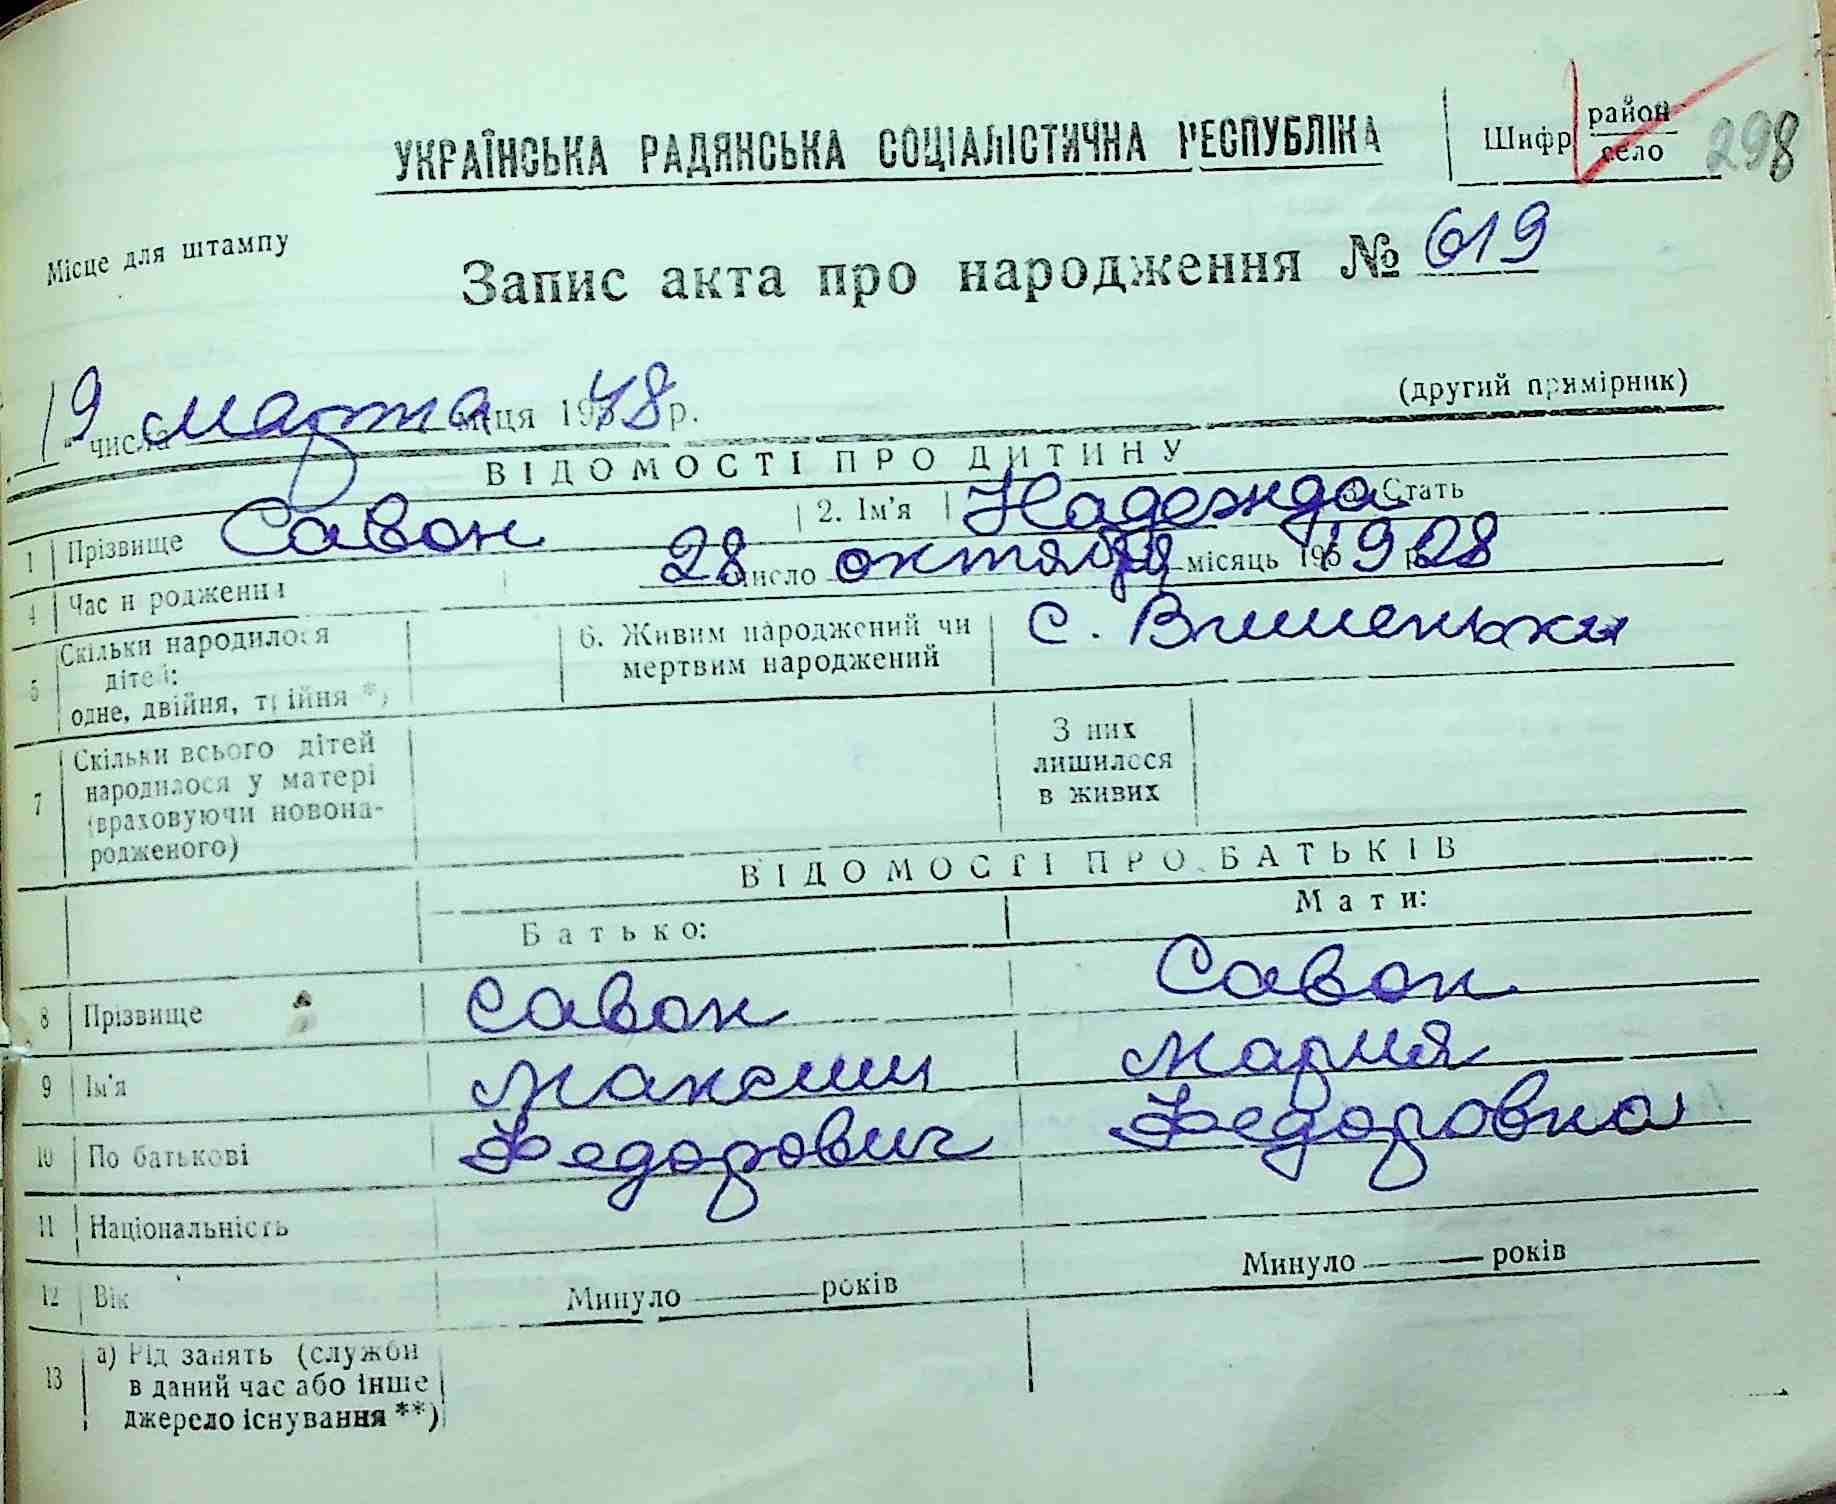 УКРАЇНСЬКА РАДЯНСЬКА СОЦІАЛІСТИЧНА РЕСПУБЛІКА
Шифр район село 298
Місце для штампу
Запис акта про народження № 619
(другий примірник)
19 числа марта місяця 1948 р.
ВІДОМОСТІ ПРО ДИТИНУ
1 Прізвище Савон 2. Ім'я Надежда 3. Стать
4 Час народження 28 число октября місяць 195 1928 р.
5 Скільки народилося дітей: одне, двійня, трійня *)
6. Живим народжений чи мертвим народжений
с. Вишеньки
7 Скільки всього дітей народилося у матері (враховуючи новонародженого)
З них лишилося в живих
ВІДОМОСТІ ПРО БАТЬКІВ
Батько: Мати:
8 Прізвище Савон Савон
9 Ім'я Максим Мария
10 По батькові Федорович Федоровна
11 Національність
12 Вік Минуло років Минуло років
13 а) Рід занять (служби
в даний час або інше
джерело існування **)